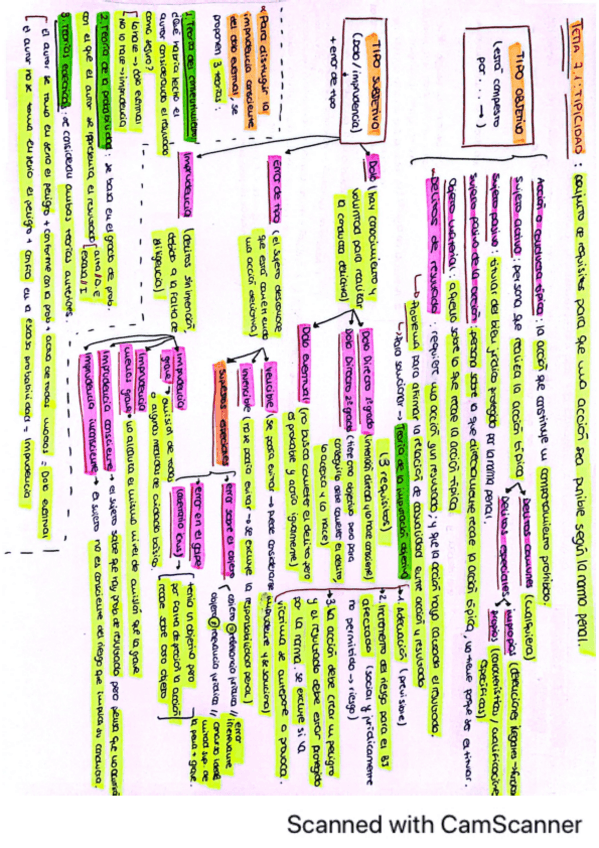 TEMA 7.1: TIPICIDAD: conjunto de requisitos para que una acción sea punible según la norma penal.
TIPO OBJETIVO
(está compuesto
por... →)
Acción o conducta típica: la acción que constituye un comportamiento prohibido.
Sujeto activo: persona que realiza la acción típica
Delitos comunes (cualquiera)
Delitos especiales
impropios
propios (característica / cualificaciones específicas)
Sujeto pasivo: titular del bien jurídico protegido por la norma penal.
Sujeto pasivo de la acción: persona sobre la que directamente recae la acción típica, no tiene porque ser el titular.
Objeto material: aquello sobre lo que recae la acción típica
Delitos de resultado: requiere una acción y un resultado; y que la acción haya causado el resultado.
↳ Problema para afirmar la relación de causalidad entre acción y resultado
↳ Para solucionar → Teoría de la imputación objetiva
(3 requisitos)
1. Adecuación (previsible)
2. Incremento del riesgo para el BJ
afectado (social y jurídicamente
no permitido → riesgo)
3. La acción debe crear un peligro
y el resultado debe estar protegido
por la norma. Se excluye si la
víctima se autopone o provoca.
TIPO SUBJETIVO
(Dolo/imprudencia)
+ error de tipo
Dolo (hay conocimiento y
voluntad para realizar
la conducta delictiva)
Dolo Directo 1º grado (intención directa y lo hace consciente)
Dolo Directo 2º grado (tiene otro objetivo pero para
conseguirlo debe cometer el delito,
lo acepta y lo hace)
Dolo eventual (no busca cometer el delito pero
es probable y actúa igualmente)
Error de tipo (el sujeto desconoce
que está cometiendo
una acción delictiva)
vencible (se puede evitar → puede considerarse imprudente y se sanciona)
invencible (no se puede evitar → se excluye la responsabilidad penal)
supuestos especiales
error sobre el objeto
objeto = relevancia jurídica // error irrelevante
objeto ≠ relevancia jurídica //
error en el golpe
(aberratio ictus) →
tenía un objetivo pero
por falta de precisión la acción
recae sobre otro objeto
la pena + grave.
Imprudencia (delitos sin intención
debido a la falta de
diligencia)
Imprudencia
grave → omisión de todas
o algunas medidas de cuidado básicas.
Imprudencia
menos grave → no alcanza el mismo nivel de omisión que la grave
Imprudencia consciente → el sujeto sabe que hay prob. de resultado pero piensa que no ocurrirá
Imprudencia inconsciente → el sujeto no es consciente del riesgo que implica su conducta.
* Para distinguir la
imprudencia consciente
del dolo eventual, se
proponen 3 teorías:
1. Teoría del consentimiento:
¿Qué habría hecho el
autor considerando el resultado
como seguro?
Lo hace → dolo eventual
No lo hace → imprudencia
2. Teoría de la probabilidad: se basa en el grado de prob.
con el que el autor se representa el resultado
alta // D.E
escasa // I
3. Teorías eclécticas: se consideran ambas teorías anteriores.
el autor se toma en serio el peligro + conforme con la prob + actúa de todos modos = dolo eventual
el autor no se toma en serio el peligro + confía en la escasa probabilidad = imprudencia
Scanned with CamScanner